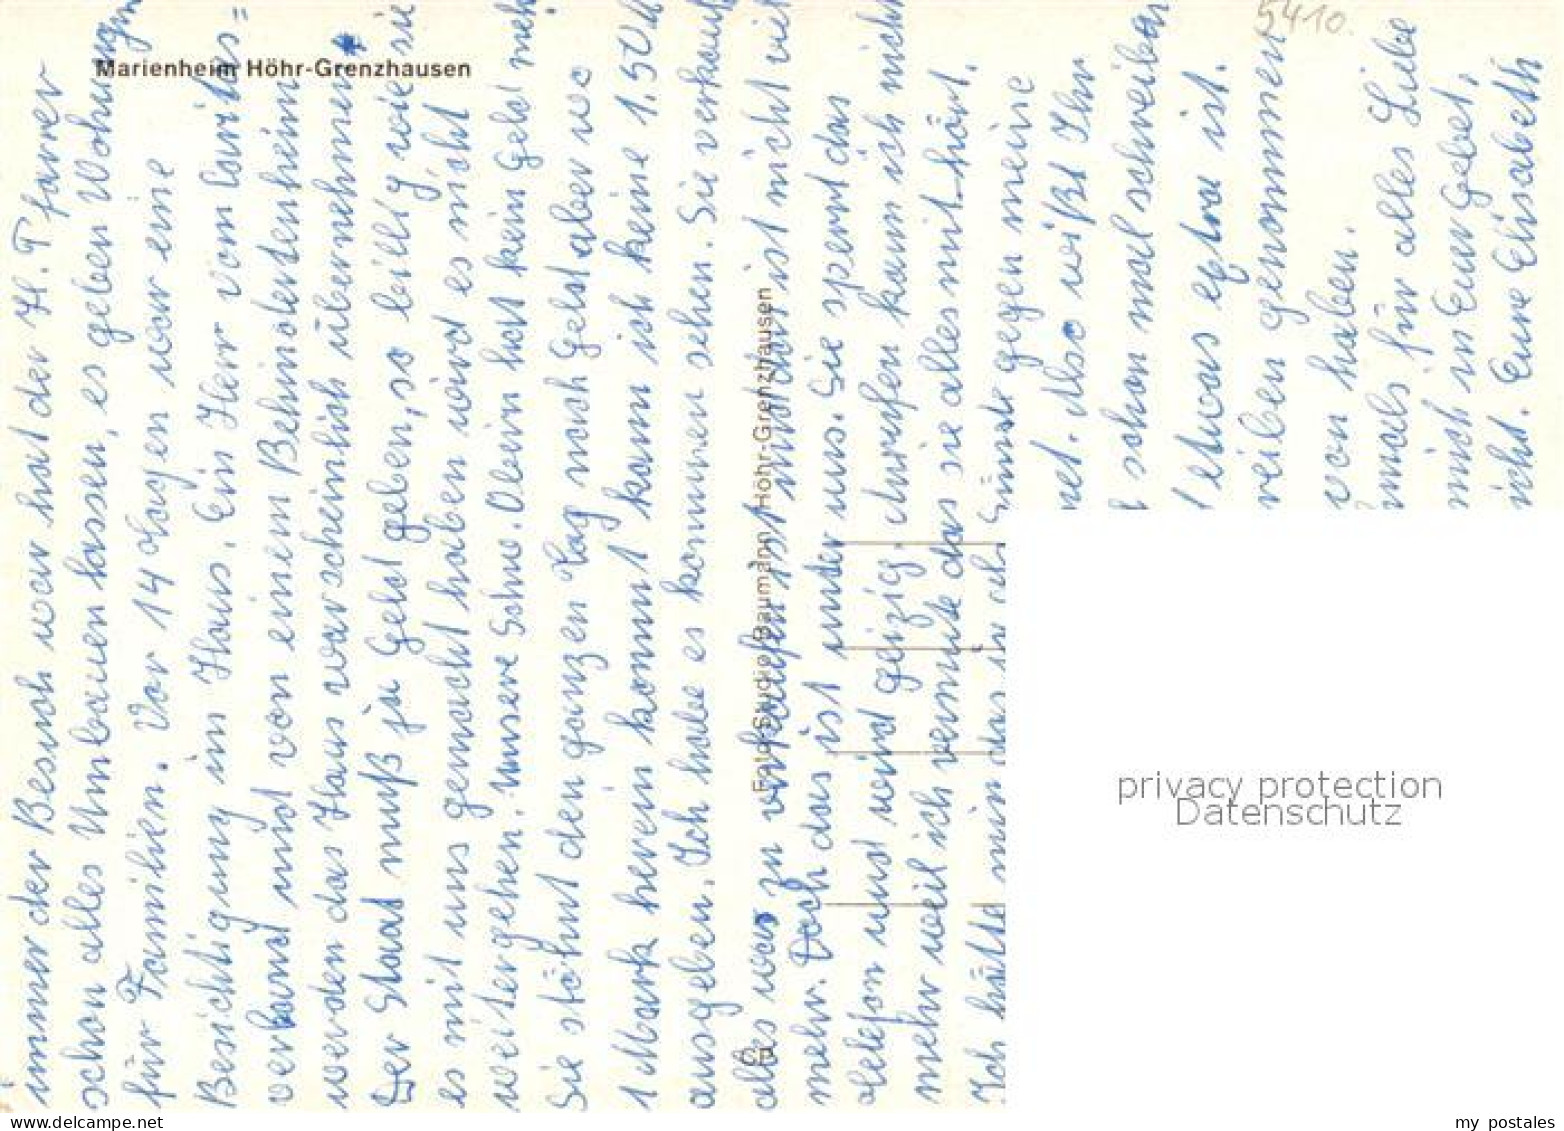 Marienheim Höhr-Grenzhausen
5410.
immer der Besuch war hat der H. Pfarrer
schon alles Umbauen lassen, es geben Wohnungen
für Familien. Vor 14 Tagen war eine
Besichtigung im Haus. Ein Herr vom Caritas=
verband und von einem Behindertenheim
werden das Haus warscheinlich übernehmen
Der Staat muß ja Geld geben, so billig wie sie
es mit uns gemacht haben wird es nicht
weitergehen. Unsere Schw. Obein hat kein Geld meh
Sie stöhnt den ganzen Tag nach Geld aber wo
1 Mark herein kommt kann ich keine 1.50 M
ausgeben. Ich habe es kommen sehen. Sie verkauft
alles was zu verkaufen ist und das ist nicht viel
mehr. Doch das ist unter uns. Sie sperrt das
Telefon und wird geizig. Anrufen kann ich nich
mehr weil ich vermute das sie alles mit-hört.
Ich hätte mir das Sünde gegen meine
net. Also wißt Ihr
schon mal schreiben
etwas extra ist.
reiben genommen
von haben.
mals für alles Liebe
mich in Eurer Gebet,
icht. Eure Elisabeth
Foto-Studio Baumann Höhr-Grenzhausen
Cp
privacy protection
Datenschutz
delcampe.net
my_postales